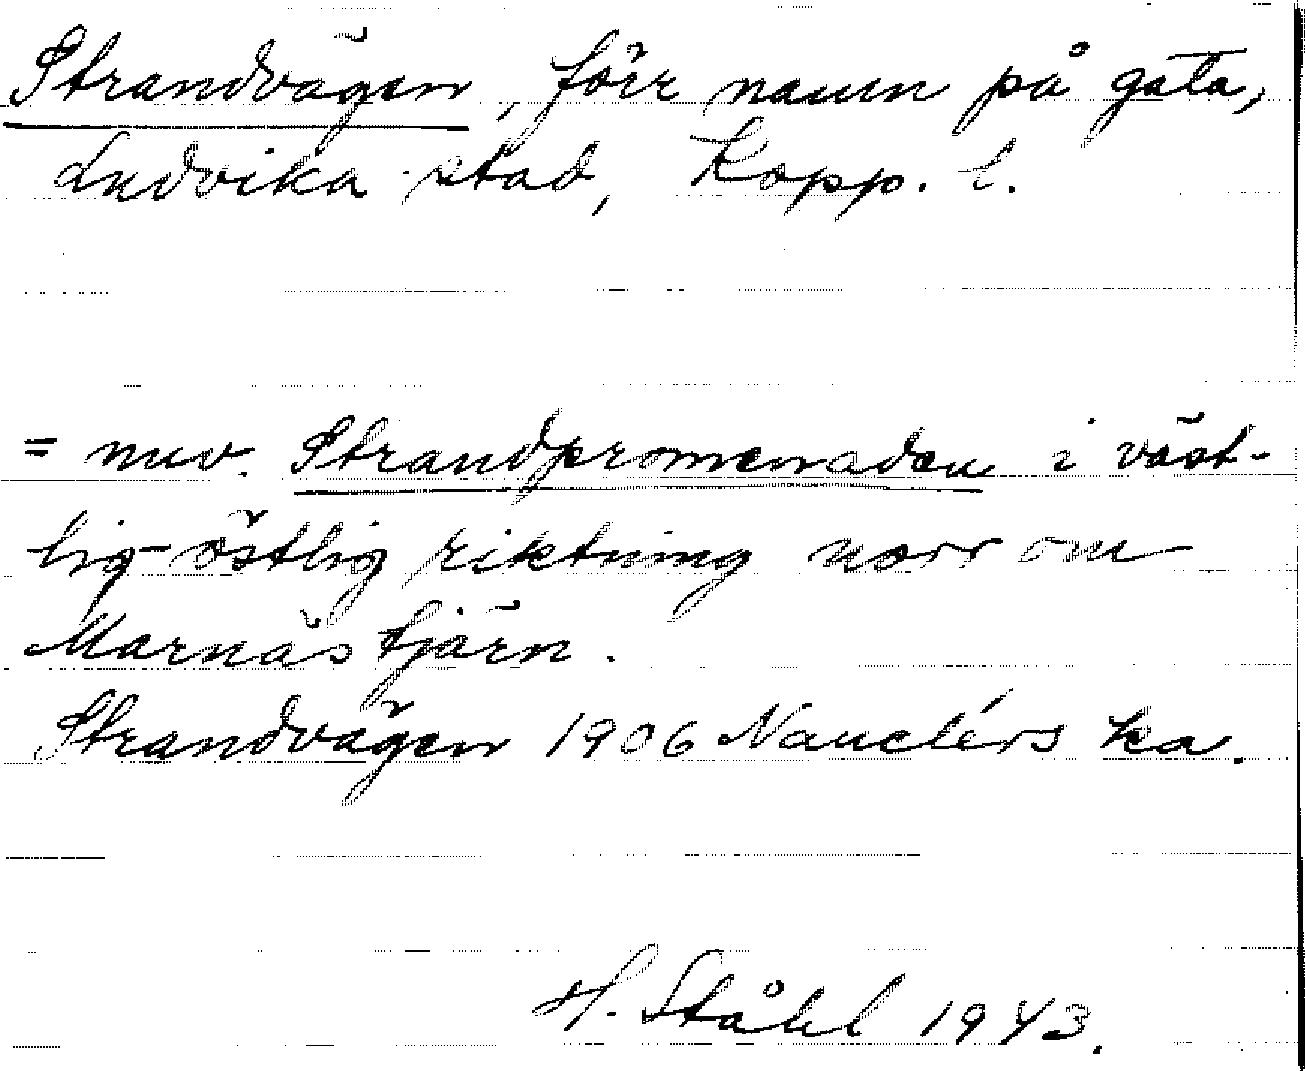 Strandvägen, förr namn på gata,
Ludvika stad, Kopp. l.
= nuv. Strandpromenaden i väst-
lig-östlig riktning norr om
Marnäs tjärn.
Strandvägen 1906 Nauclérs ka.
H. Ståhl 1943.